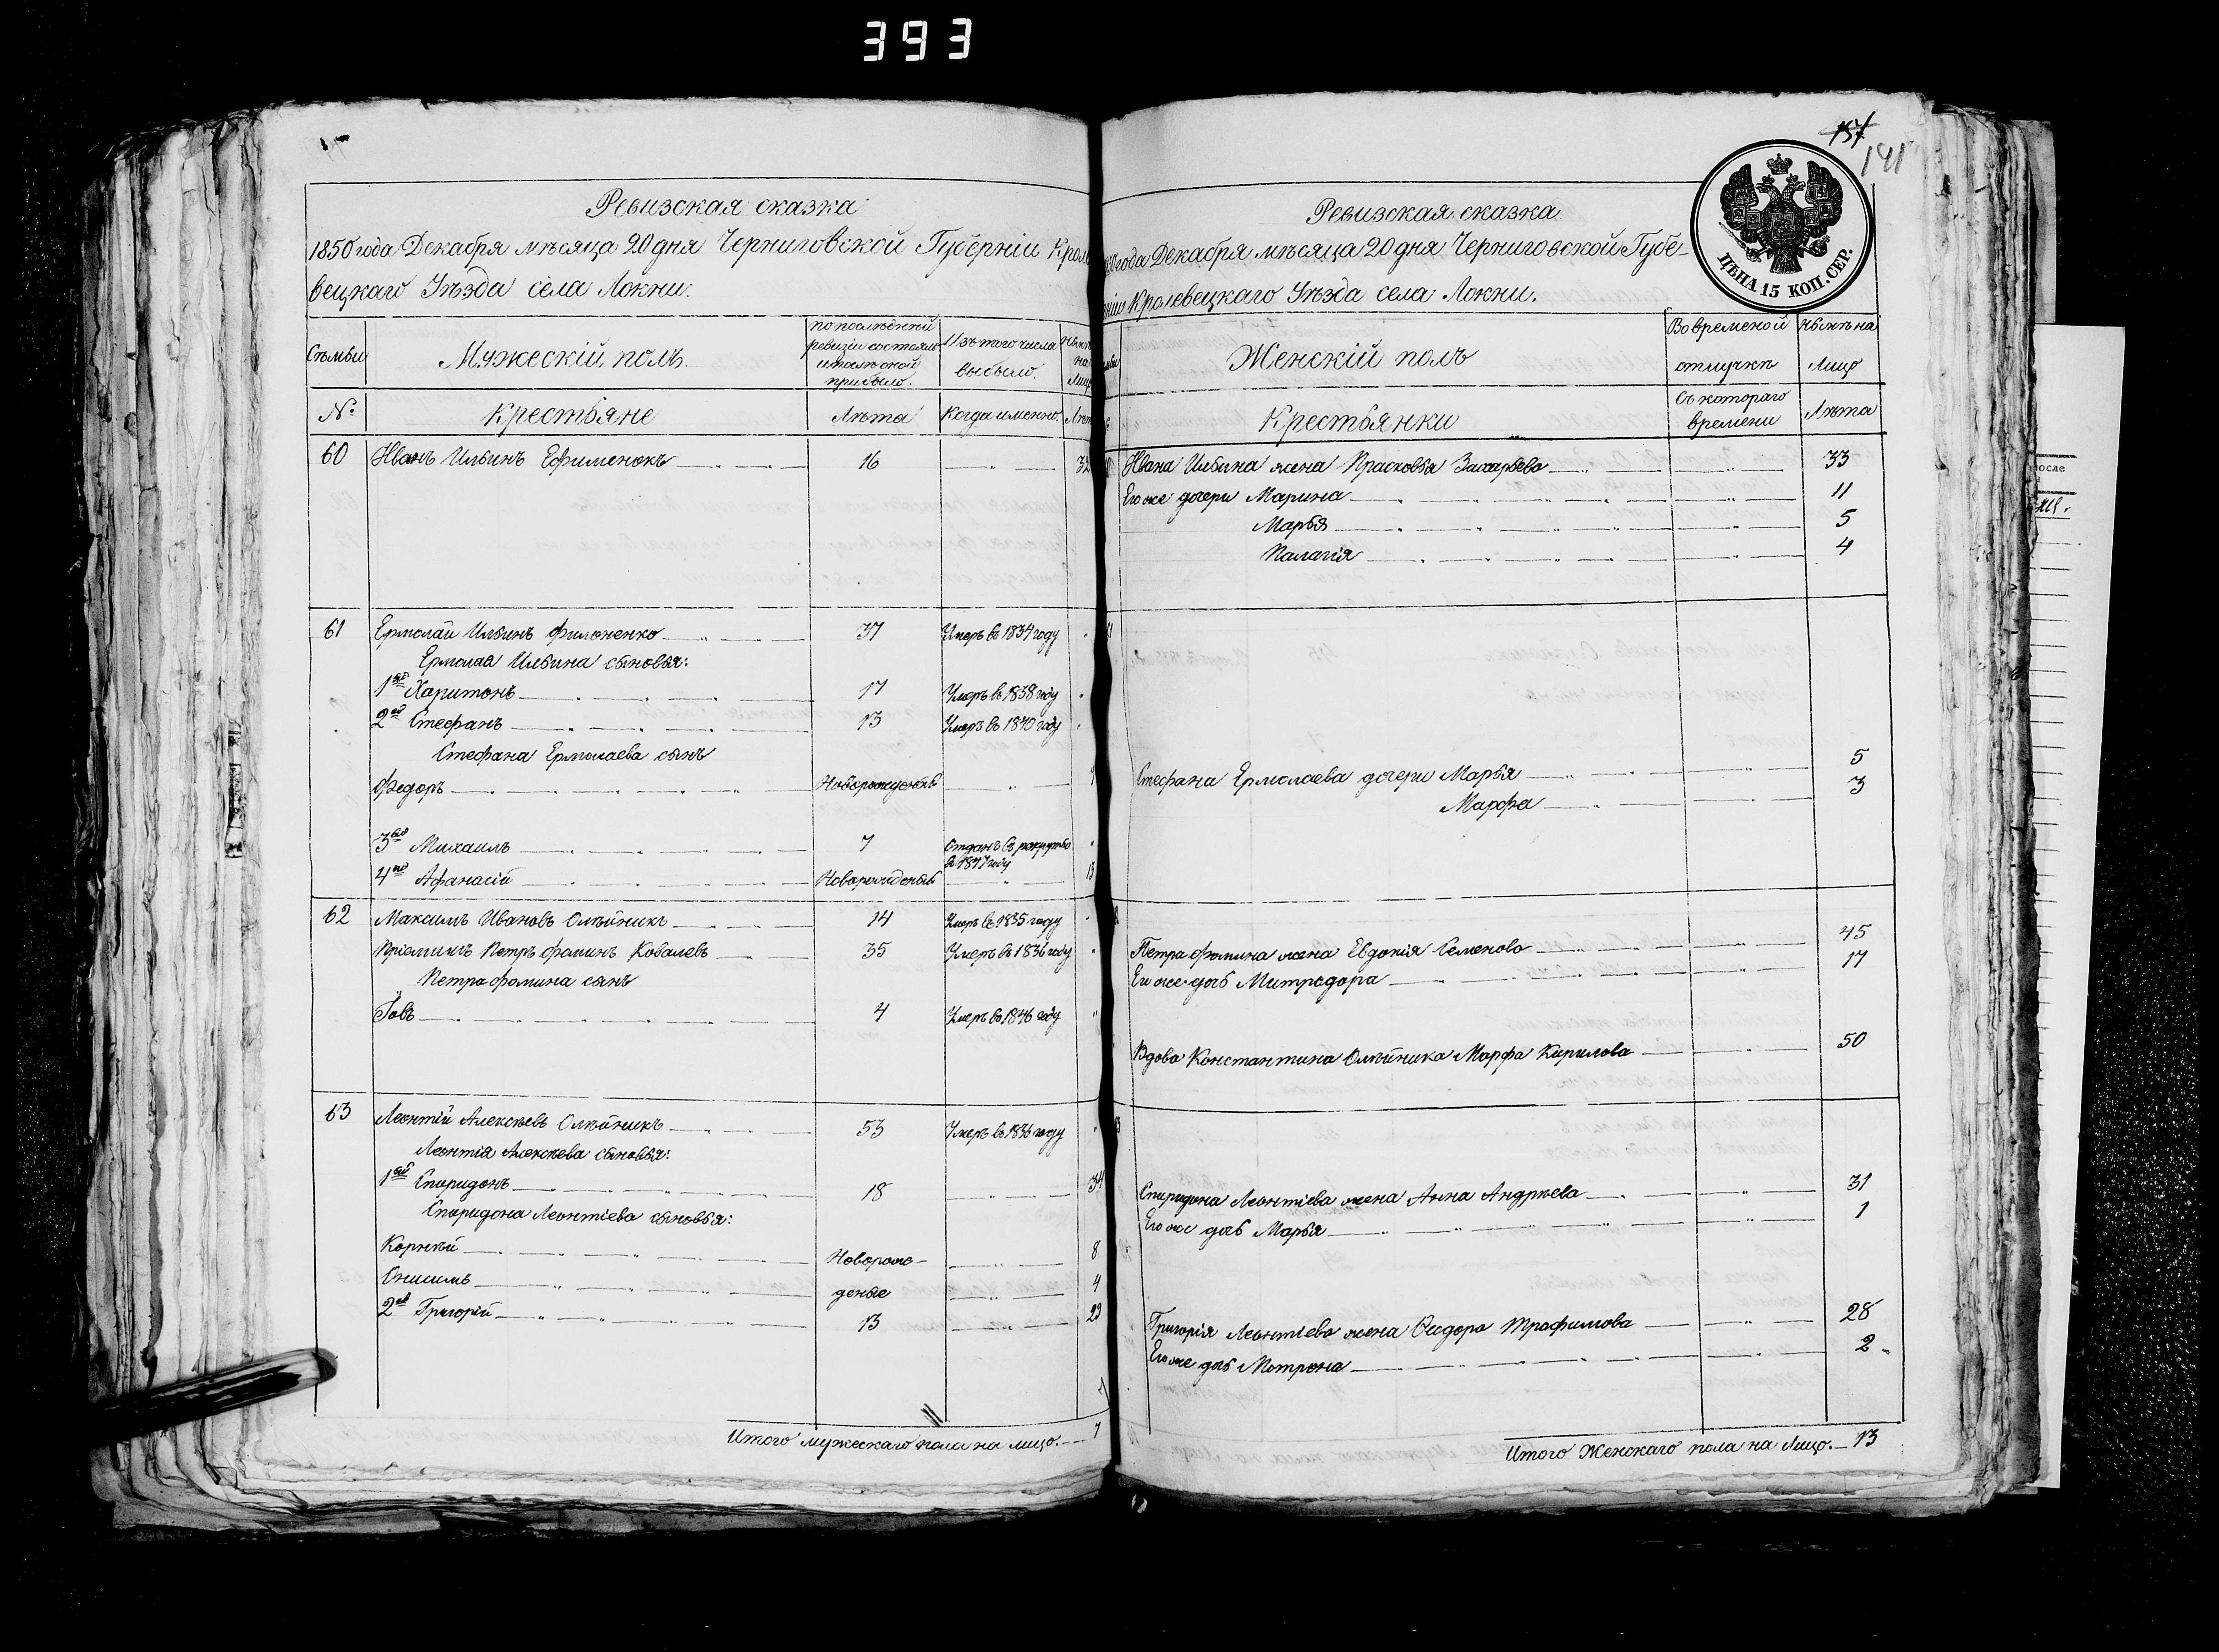 393
Ревизская сказка
1850 года Декабря мѣсяца 20 дня Черниговской Губерніи Кроле
вецкаго Уѣзда села Локни.
Сѣмьи
Мужескій полъ.
по послѣдней ревизіи состояло и послѣ оной прибыло.
Изъ того числа выбыло.
Нынѣ на Лицо
№
Крестьяне
Лѣта
Когда именно.
Лѣта
60 Иванъ Ильинъ Ефименокъ 16 32
61 Ермолай Ильинъ Филоненко 37 Умеръ въ 1834 году
Ермолая Ильина сыновья:
1ый Харитонъ 17 Умеръ въ 1838 году
2ой Стефанъ 13 Умеръ въ 1840 году
Стефана Ермолаева сынъ
Федоръ Новорожденый
3ий Михаилъ 7 Отданъ въ рекруты
въ 1847 году
4ый Афанасій Новорожденый 13
62 Максимъ Ивановъ Олѣйникъ 14 Умеръ въ 1835 году
Пріемышъ Петръ Фоминъ Ковалевъ 35 Умеръ въ 1836 году
Петра Фомина сынъ
Іовъ 4 Умеръ въ 1846 году
63 Леонтій Алексѣевъ Олѣйникъ 53 Умеръ въ 1836 году
Леонтія Алексѣева сыновья:
1ый Спиридонъ 18 34
Спиридона Леонтіева сыновья:
Корнѣй Новорож- 8
Онисимъ деные 4
2ой Григорій 13 29
Итого мужескаго пола на лицо. 7
157
141
ЦѢНА 15 КОП. СЕР.
Ревизская сказка
1850 года Декабря мѣсяца 20 дня Черниговской Губе-
рніи Кролевецкаго Уѣзда села Локни.
Женскій полъ
Во временой отлучкѣ
Нынѣ на Лицо
Крестьянки
Съ котораго времени
Лѣта
Ивана Ильина жена Прасковья Захарьева 33
Его же дочери Марина 11
Марья 5
Палагія 4
Стефана Ермолаева дочери Марья 5
Марфа 3
Петра Фомина жена Евдокія Семенова 45
Его же дочь Митродора 17
Вдова Константина Олѣйника Марфа Кирилова 50
Спиридона Леонтіева жена Анна Андрѣева 31
Его же дочь Марья 1
Григорія Леонтіева жена Федора Трофимова 28
Его же дочь Мотрона 2
Итого Женскаго пола на Лицо. 13